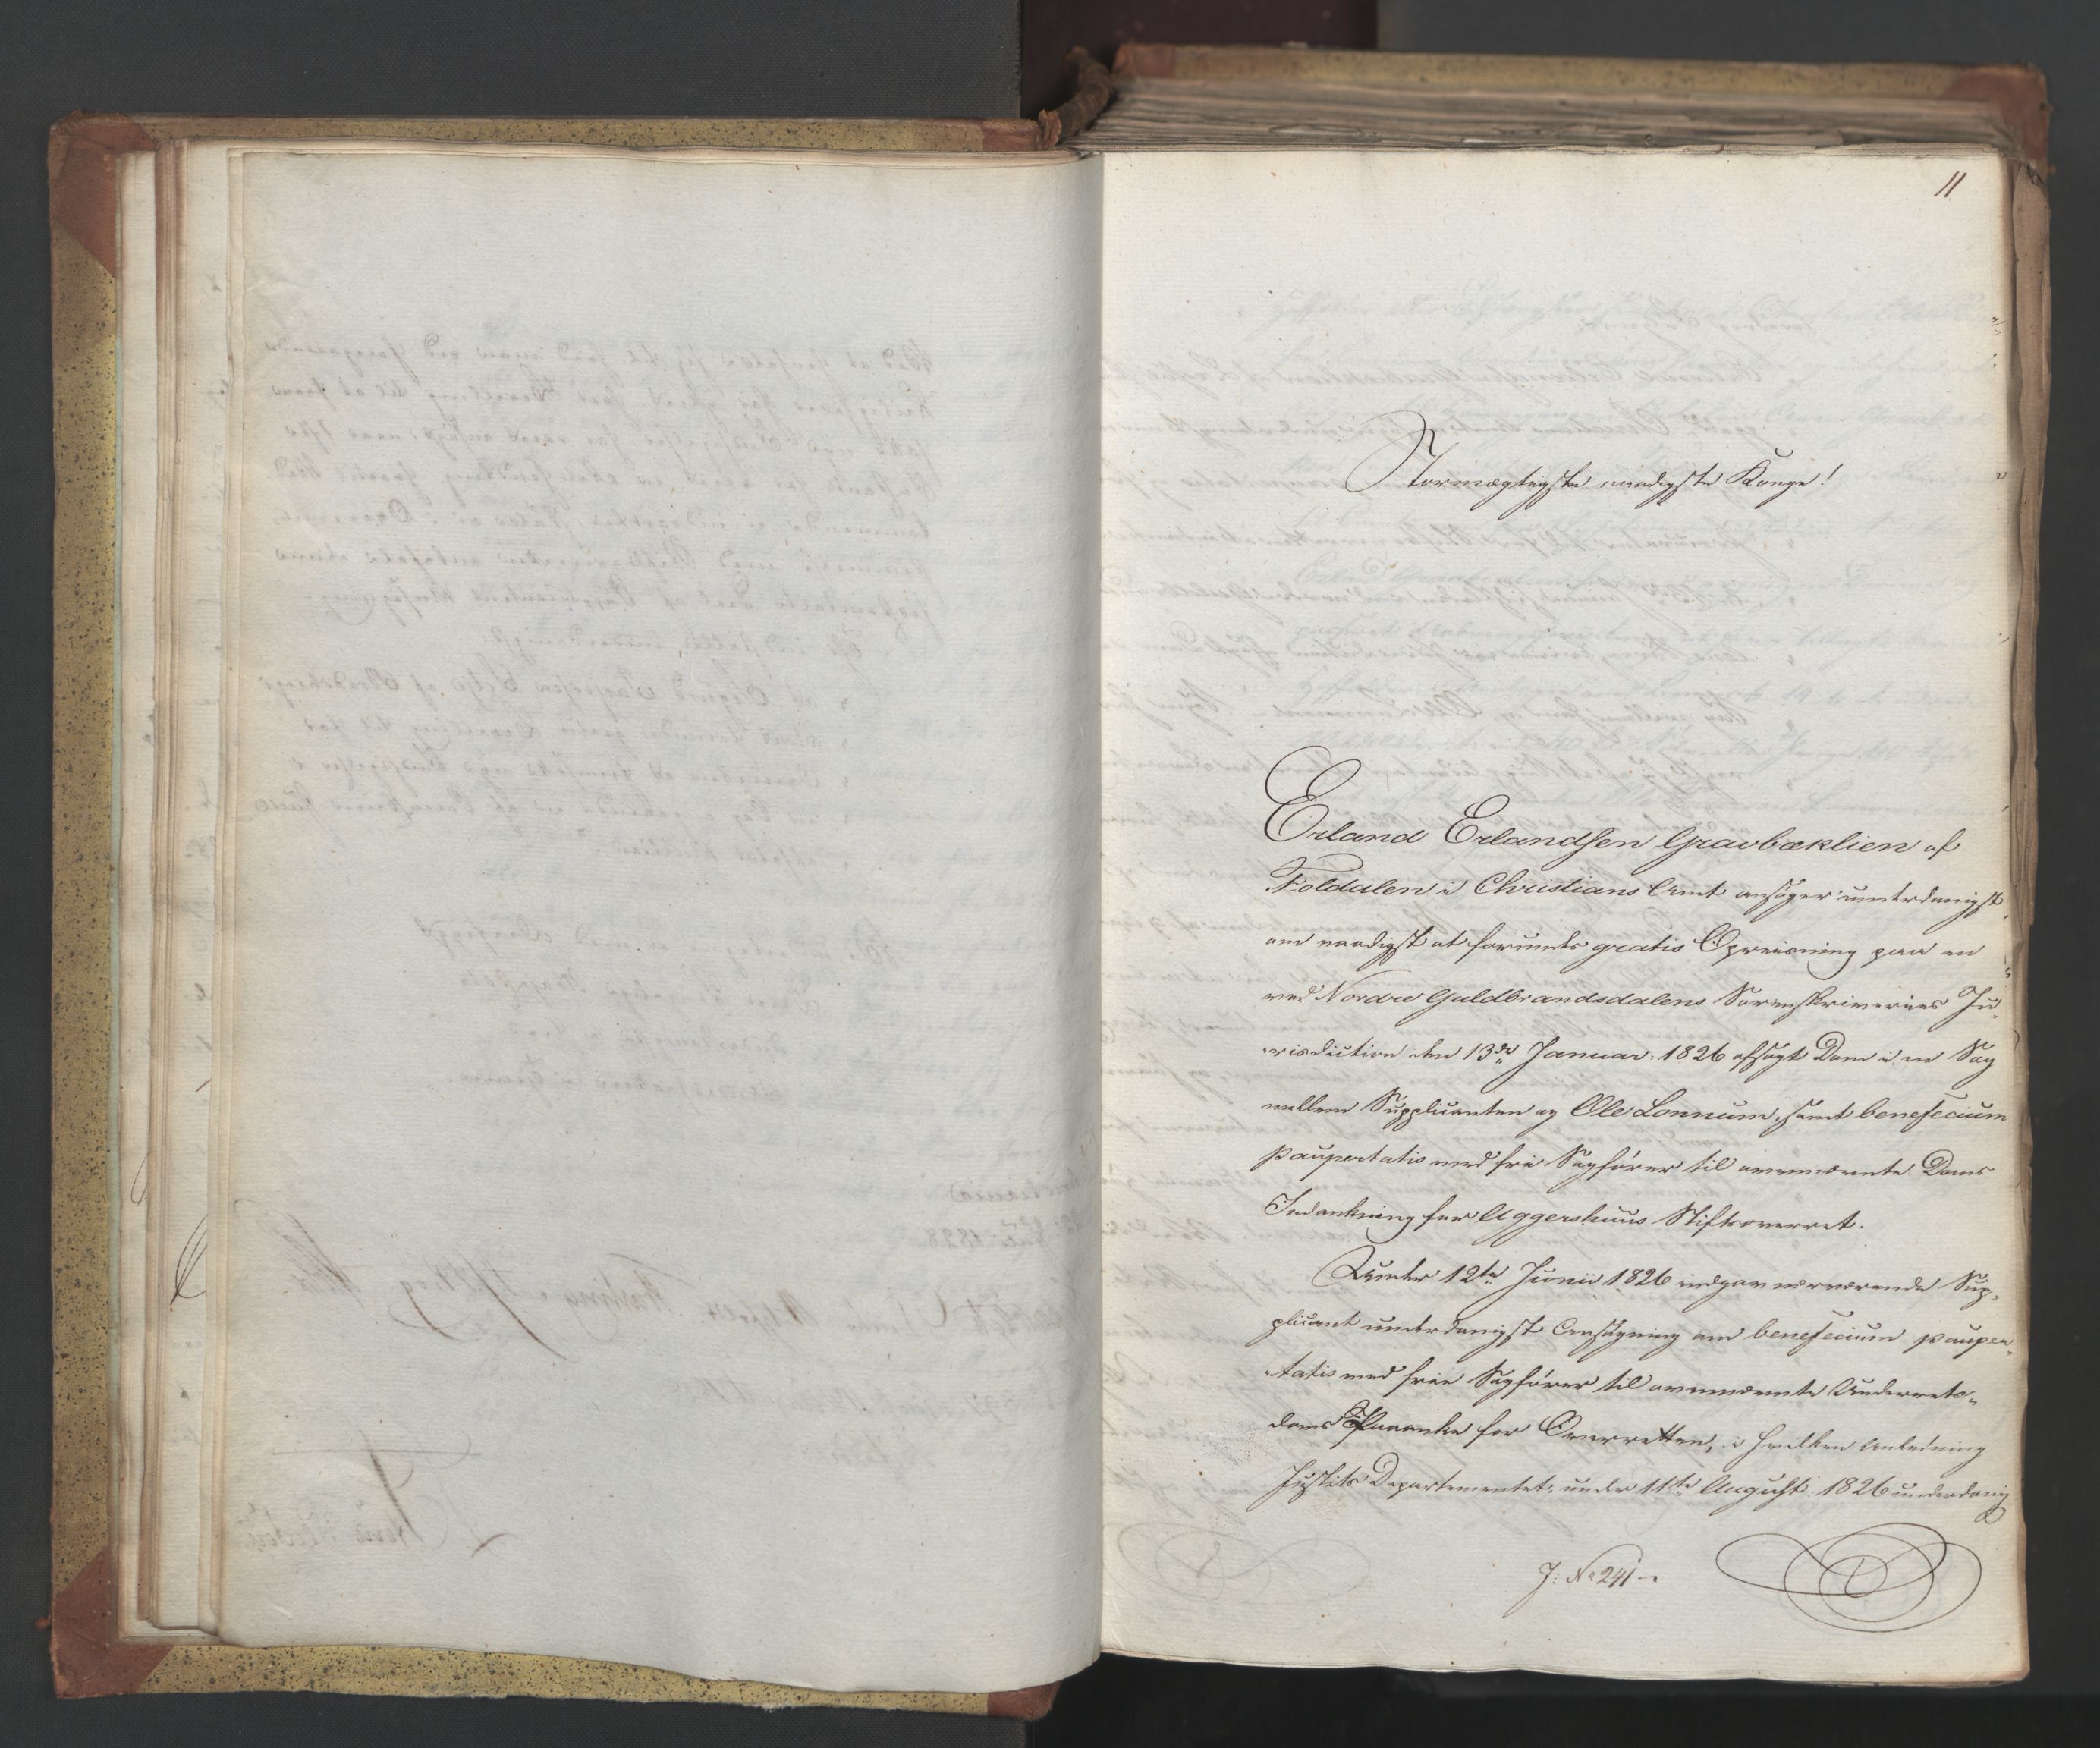 11
Stormægtigste naadigste Konge!
Erland Erlandsen Gravbæklien af
Foldalen i Christians Amt ansøger underdanigst
om naadigst at forundes gratis Opreisning paa en
ved Nordre Guldbrandsdalens Sorenskriveries Ju-
risdiction den 13de Januar 1826 afsagt Dom i en Sag
mellem Supplicanten og Ole Lonnum, samt beneficium
paupertatis med frie Sagfører til ovennævnte Doms
Indankning for Aggershuus Stiftsoverret.
Under 12te Junii 1826 indgav nærværende Sup-
plicant underdanigst Ansøgning om beneficium pauper-
tatis med frie Sagfører til ovennævnte Underrets-
doms Paaanke for Overretten, i hvilken Anledning
Justits Departementet, under 11te August 1826 underdanig
J: No 241